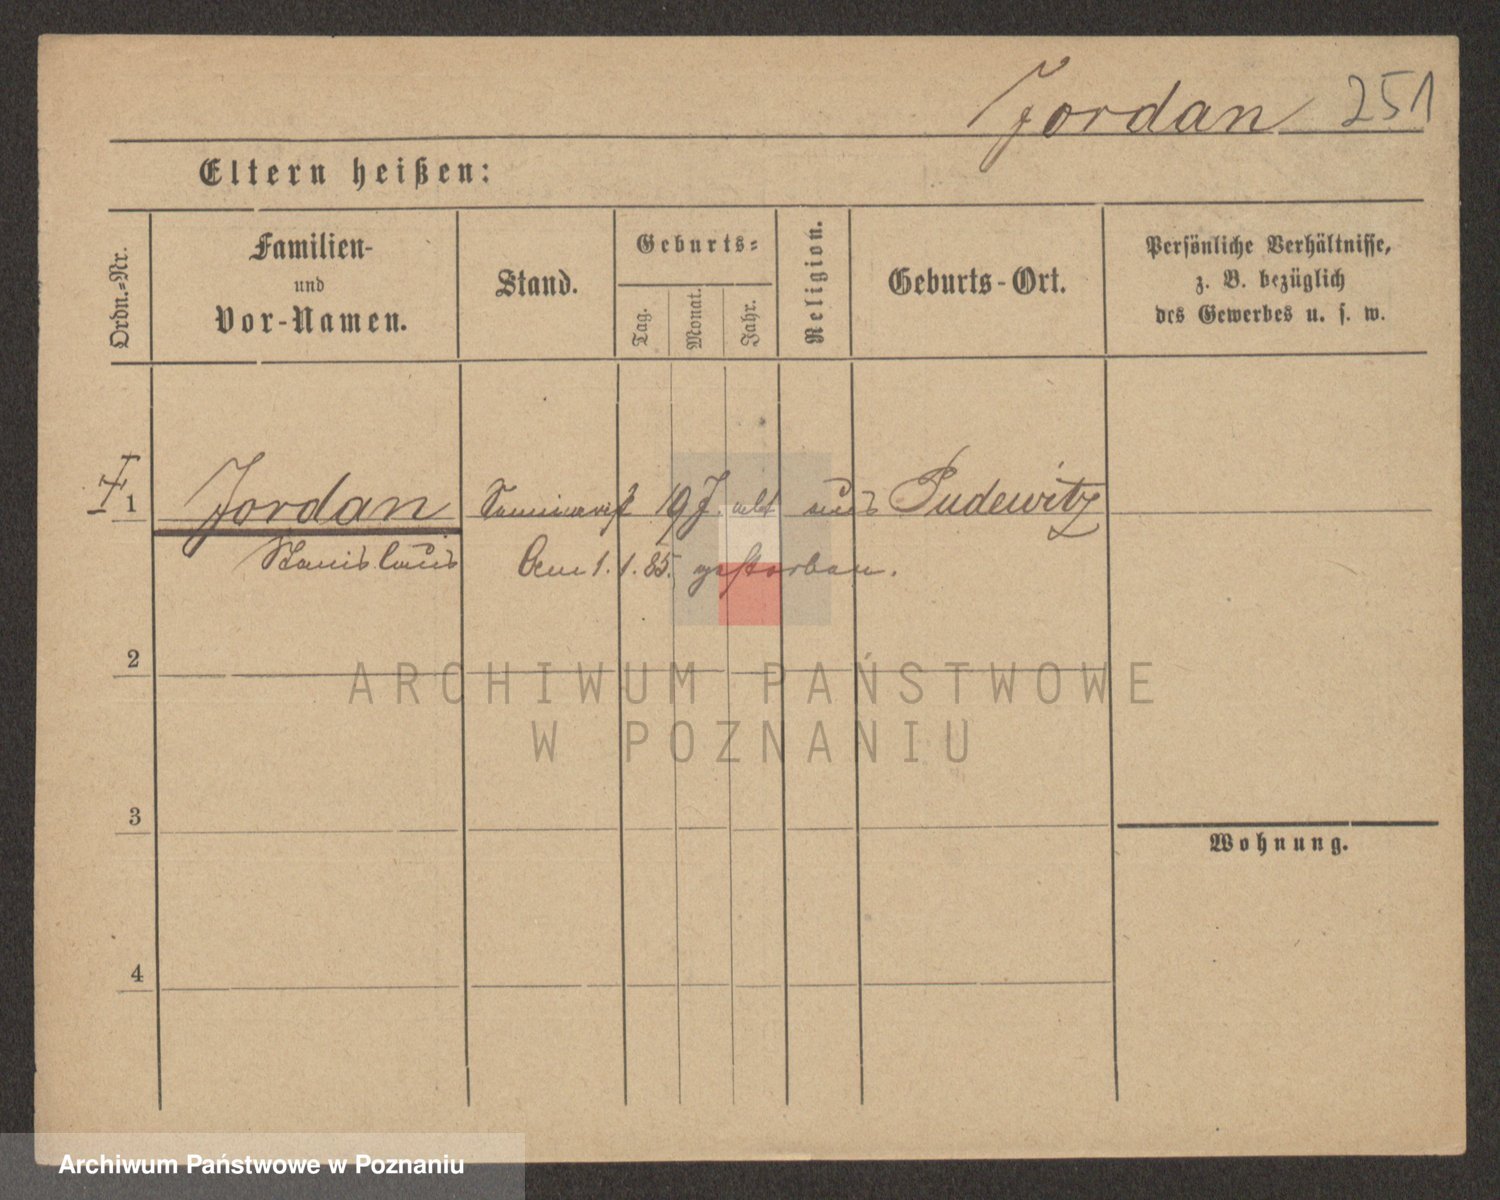 Jordan 251
Eltern heißen:
Ordn.-Nr.
Familien-
und
Vor-Namen.
Stand.
Geburts-
Tag.
Monat.
Jahr.
Religion.
Geburts-Ort.
Persönliche Verhältnisse,
z. B. bezüglich
des Gewerbes u. s. w.
1 Jordan Seminarist 19 J. alt aus Pudewitz
Stanislaus Am 1.1.85. gestorben.
2
ARCHIWUM PAŃSTWOWE
W POZNANIU
3
Wohnung.
4
Archiwum Państwowe w Poznaniu